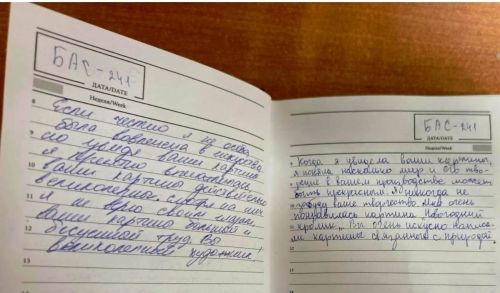 БАС-241
ДАТА/DATE
Неделя/Week
8
Если честно я не особо
была вовлечена в искусство
9
но увидев ваши картины
я приятно впечатлилась
10
ваши картины действительно
великолепны. Смотря на них
11
я не верю своим глазам
ваши картины большой и
12
бесценный труд. Вы
великолепный художник!
13
БАС-241
ДАТА/DATE
Неделя/Week
8
Когда я увидела ваши картины,
я поняла насколько мир и его тво-
9
рение в вашем производстве может
быть прекрасным. Я никогда не
10
забуду ваше творчество. Мне очень
понравилась картина „Новогодний
11
кролик". Вы очень искусно написа-
ли картины связанные с природой.
12